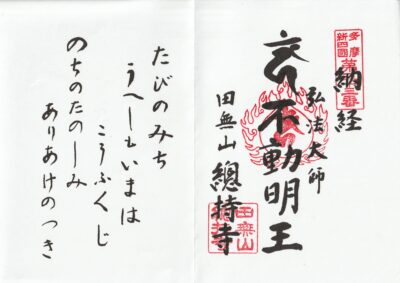 多摩
新四国
納経
弘法大師
不動明王
田無山
總持寺
田無山
たびのみち
うへしもいまは
こうふくじ
のちのたのしみ
ありあけのつき